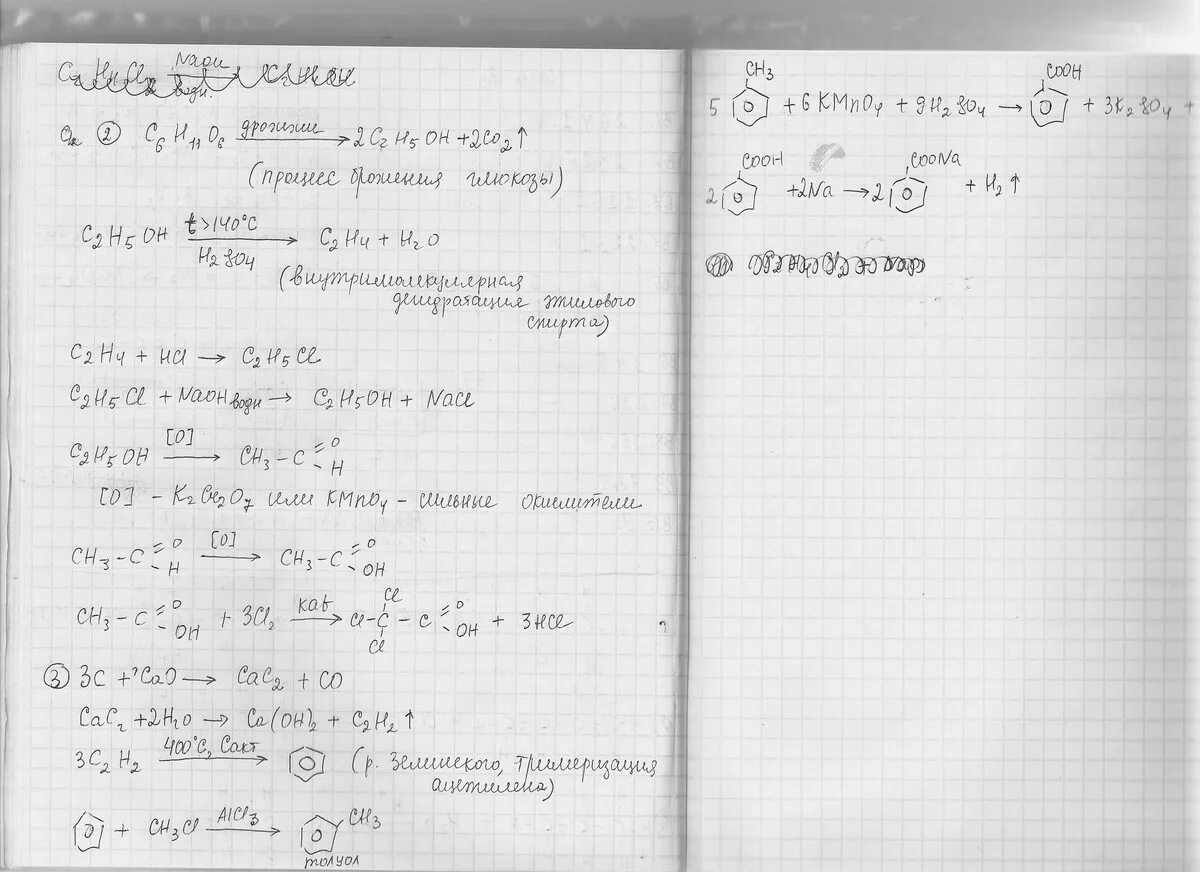 NaOH
водн.
② C6H11O6 дрожжи → 2C2H5OH + 2CO2↑
(процесс брожения глюкозы)
C2H5OH t>140°C H2SO4 → C2H4 + H2O
(внутримолекулярная
дегидратация этилового
спирта)
C2H4 + HCl → C2H5Cl
C2H5Cl + NaOH водн → C2H5OH + NaCl
C2H5OH [O] → CH3-C =O -H
[O] - K2Cr2O7 или KMnO4 - сильные окислители
CH3-C =O -H [O] → CH3-C =O -OH
CH3-C =O -OH + 3Cl2 kat → Cl-C(Cl)(Cl)-C =O -OH + 3HCl
③ 3C + CaO → CaC2 + CO
CaC2 + 2H2O → Ca(OH)2 + C2H2↑
3C2H2 400°C, Cакт → (р. Зелинского, тримеризация
ацетилена)
+ CH3Cl AlCl3 → CH3
толуол
5 CH3 + 6KMnO4 + 9H2SO4 → COOH + 3K2SO4 +
2 COOH + 2Na → 2 COONa + H2↑